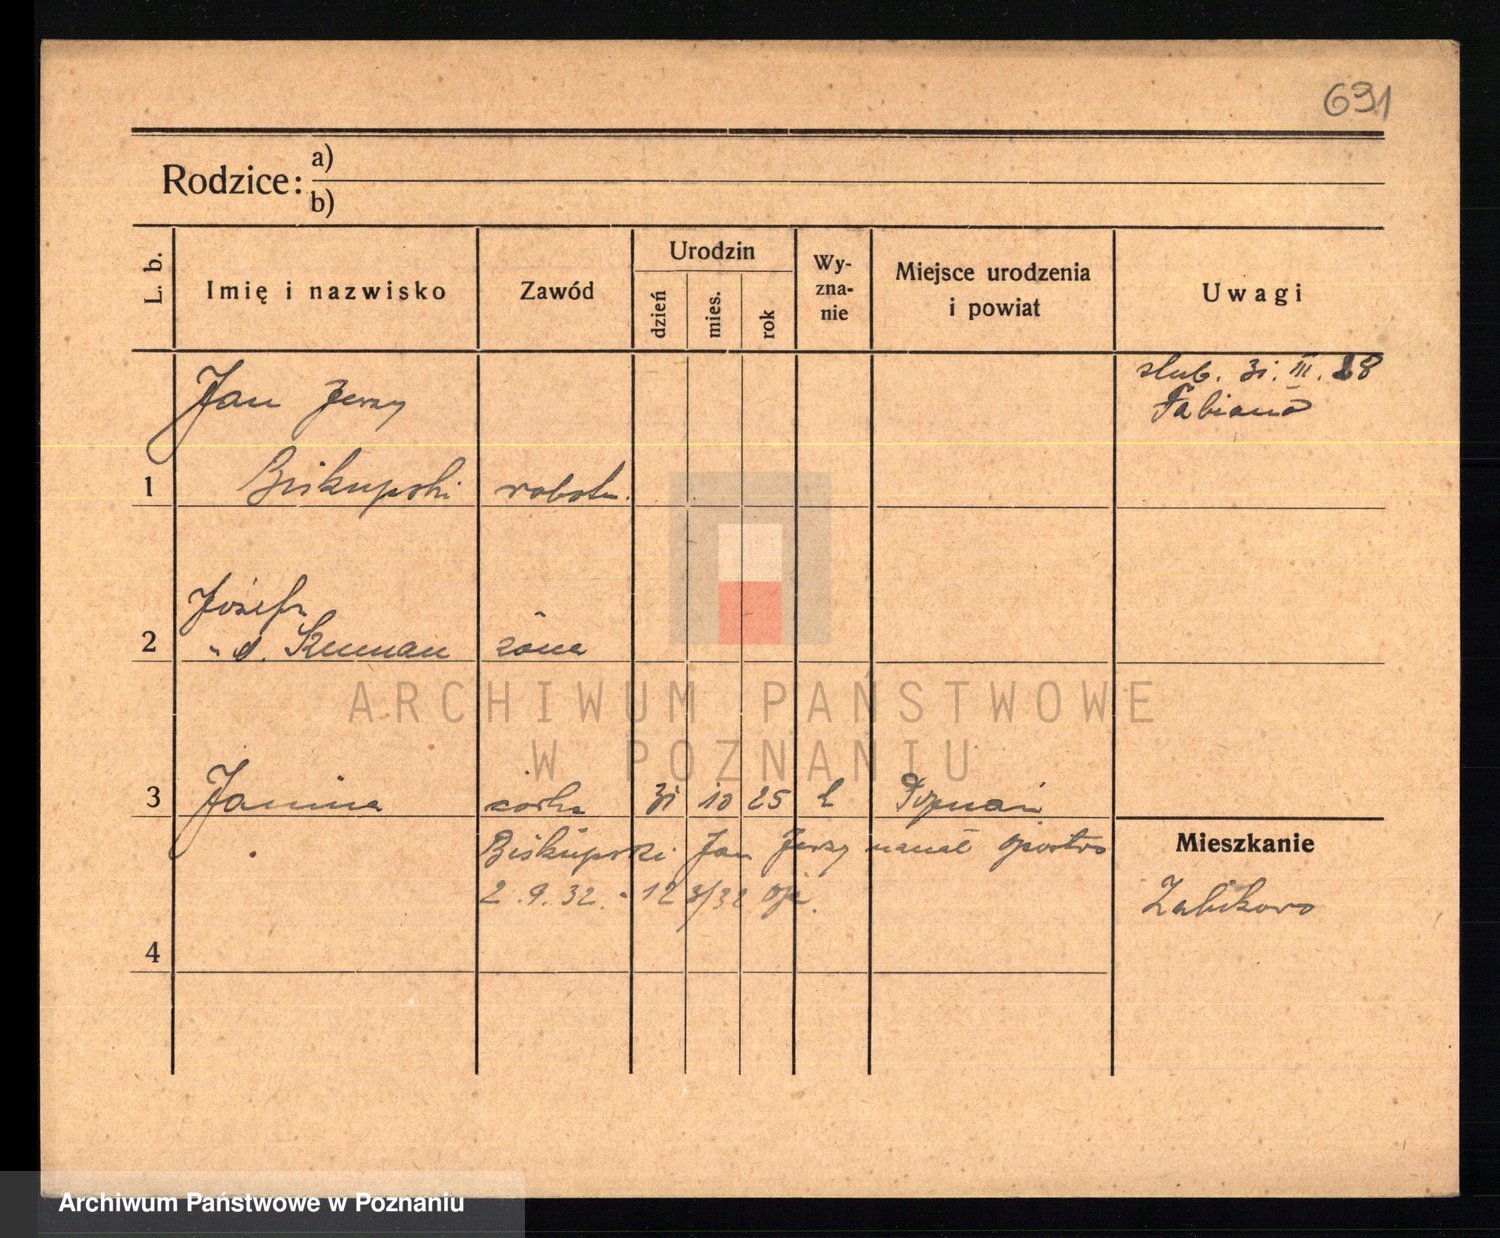 691
Rodzice: a)
b)
L. b.
Imię i nazwisko
Zawód
Urodzin
dzień
mies.
rok
Wy-
zna-
nie
Miejsce urodzenia
i powiat
Uwagi
Jan Jerzy
ślub. 31. III. 28
Fabiano
1 Biskupski robotn.
Józefa
2 " d. Szuman żona
ARCHIWUM PAŃSTWOWE
W POZNANIU
3 Janina córka 31 10 25 Poznań
Mieszkanie
Biskupski Jan Jerzy
2.9.32. - 12 3/32
Żabikowo
4
Archiwum Państwowe w Poznaniu